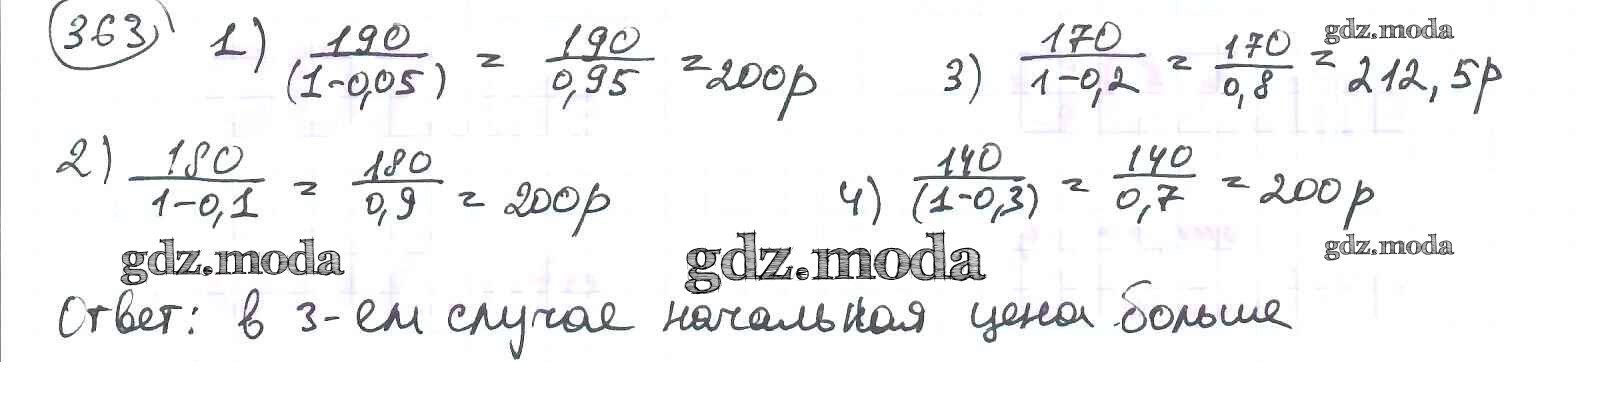 363
1) 190/(1-0,05) = 190/0,95 = 200р
3) 170/1-0,2 = 170/0,8 = 212,5р
gdz.moda
2) 180/1-0,1 = 180/0,9 = 200р
4) 140/(1-0,3) = 140/0,7 = 200р
gdz.moda
gdz.moda
gdz.moda
Ответ: в 3-ем случае начальная цена больше